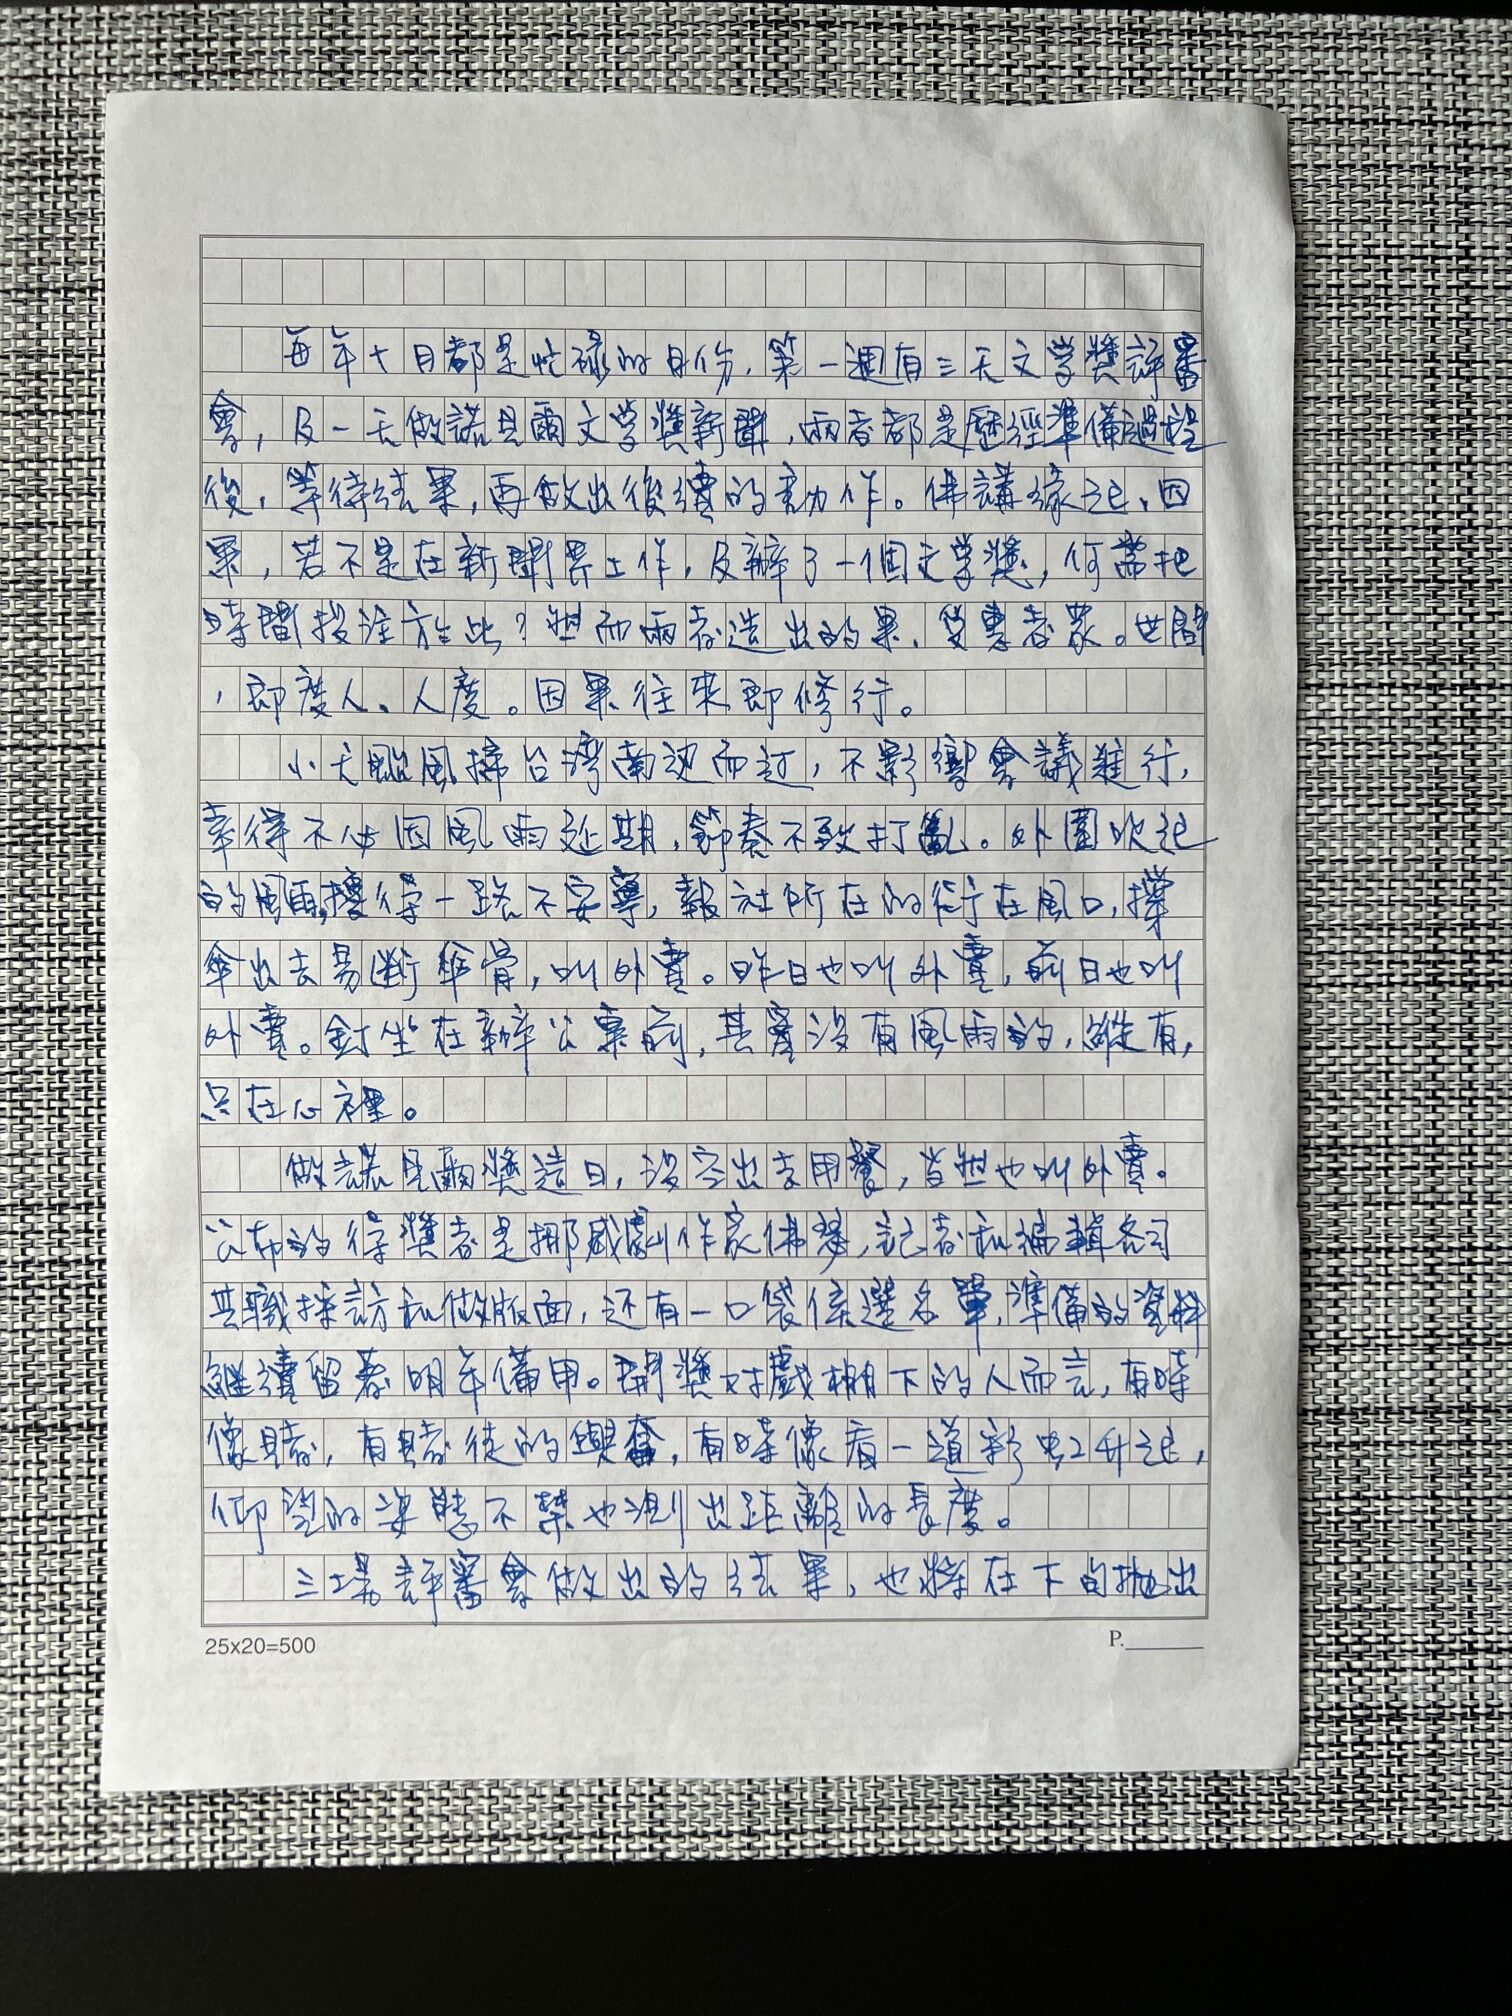 每年十月都是忙碌的月份，第一週有三天文學獎評審
會，及一天做諾貝爾文學獎新聞，兩者都是歷經準備過程
後，等待結果，再做出後續的動作。佛講緣起、因
果，若不是在新聞界工作，及辦了一個文學獎，何需把
時間投注於此？然而兩者造出的果，受惠者眾。世間
，即度人、人度。因果往來即修行。
小犬颱風掃台灣南邊而過，不影響會議進行，
幸得不必因風雨延期，節奏不致打亂。外圍吹起
的風雨，擾得一路不安寧，報社所在的街在風口，撐
傘出去易斷傘骨，叫外賣。昨日也叫外賣，前日也叫
外賣。釘坐在辦公桌前，其實沒有風雨的，縱有，
只在心裡。
做諾貝爾獎這日，沒空出去用餐，當然也叫外賣。
公布的得獎者是挪威劇作家佛瑟，記者和編輯各司
其職採訪和做版面，还有一口袋候選名單，準備的資料
繼續留著明年備用。開獎對戲棚下的人而言，有時
像賭，有賭徒的興奮，有時像看一道彩虹升起，
仰望的姿態不禁也測出距離的長度。
三場評審會做出的結果，也將在下旬抽出
25x20=500
P.